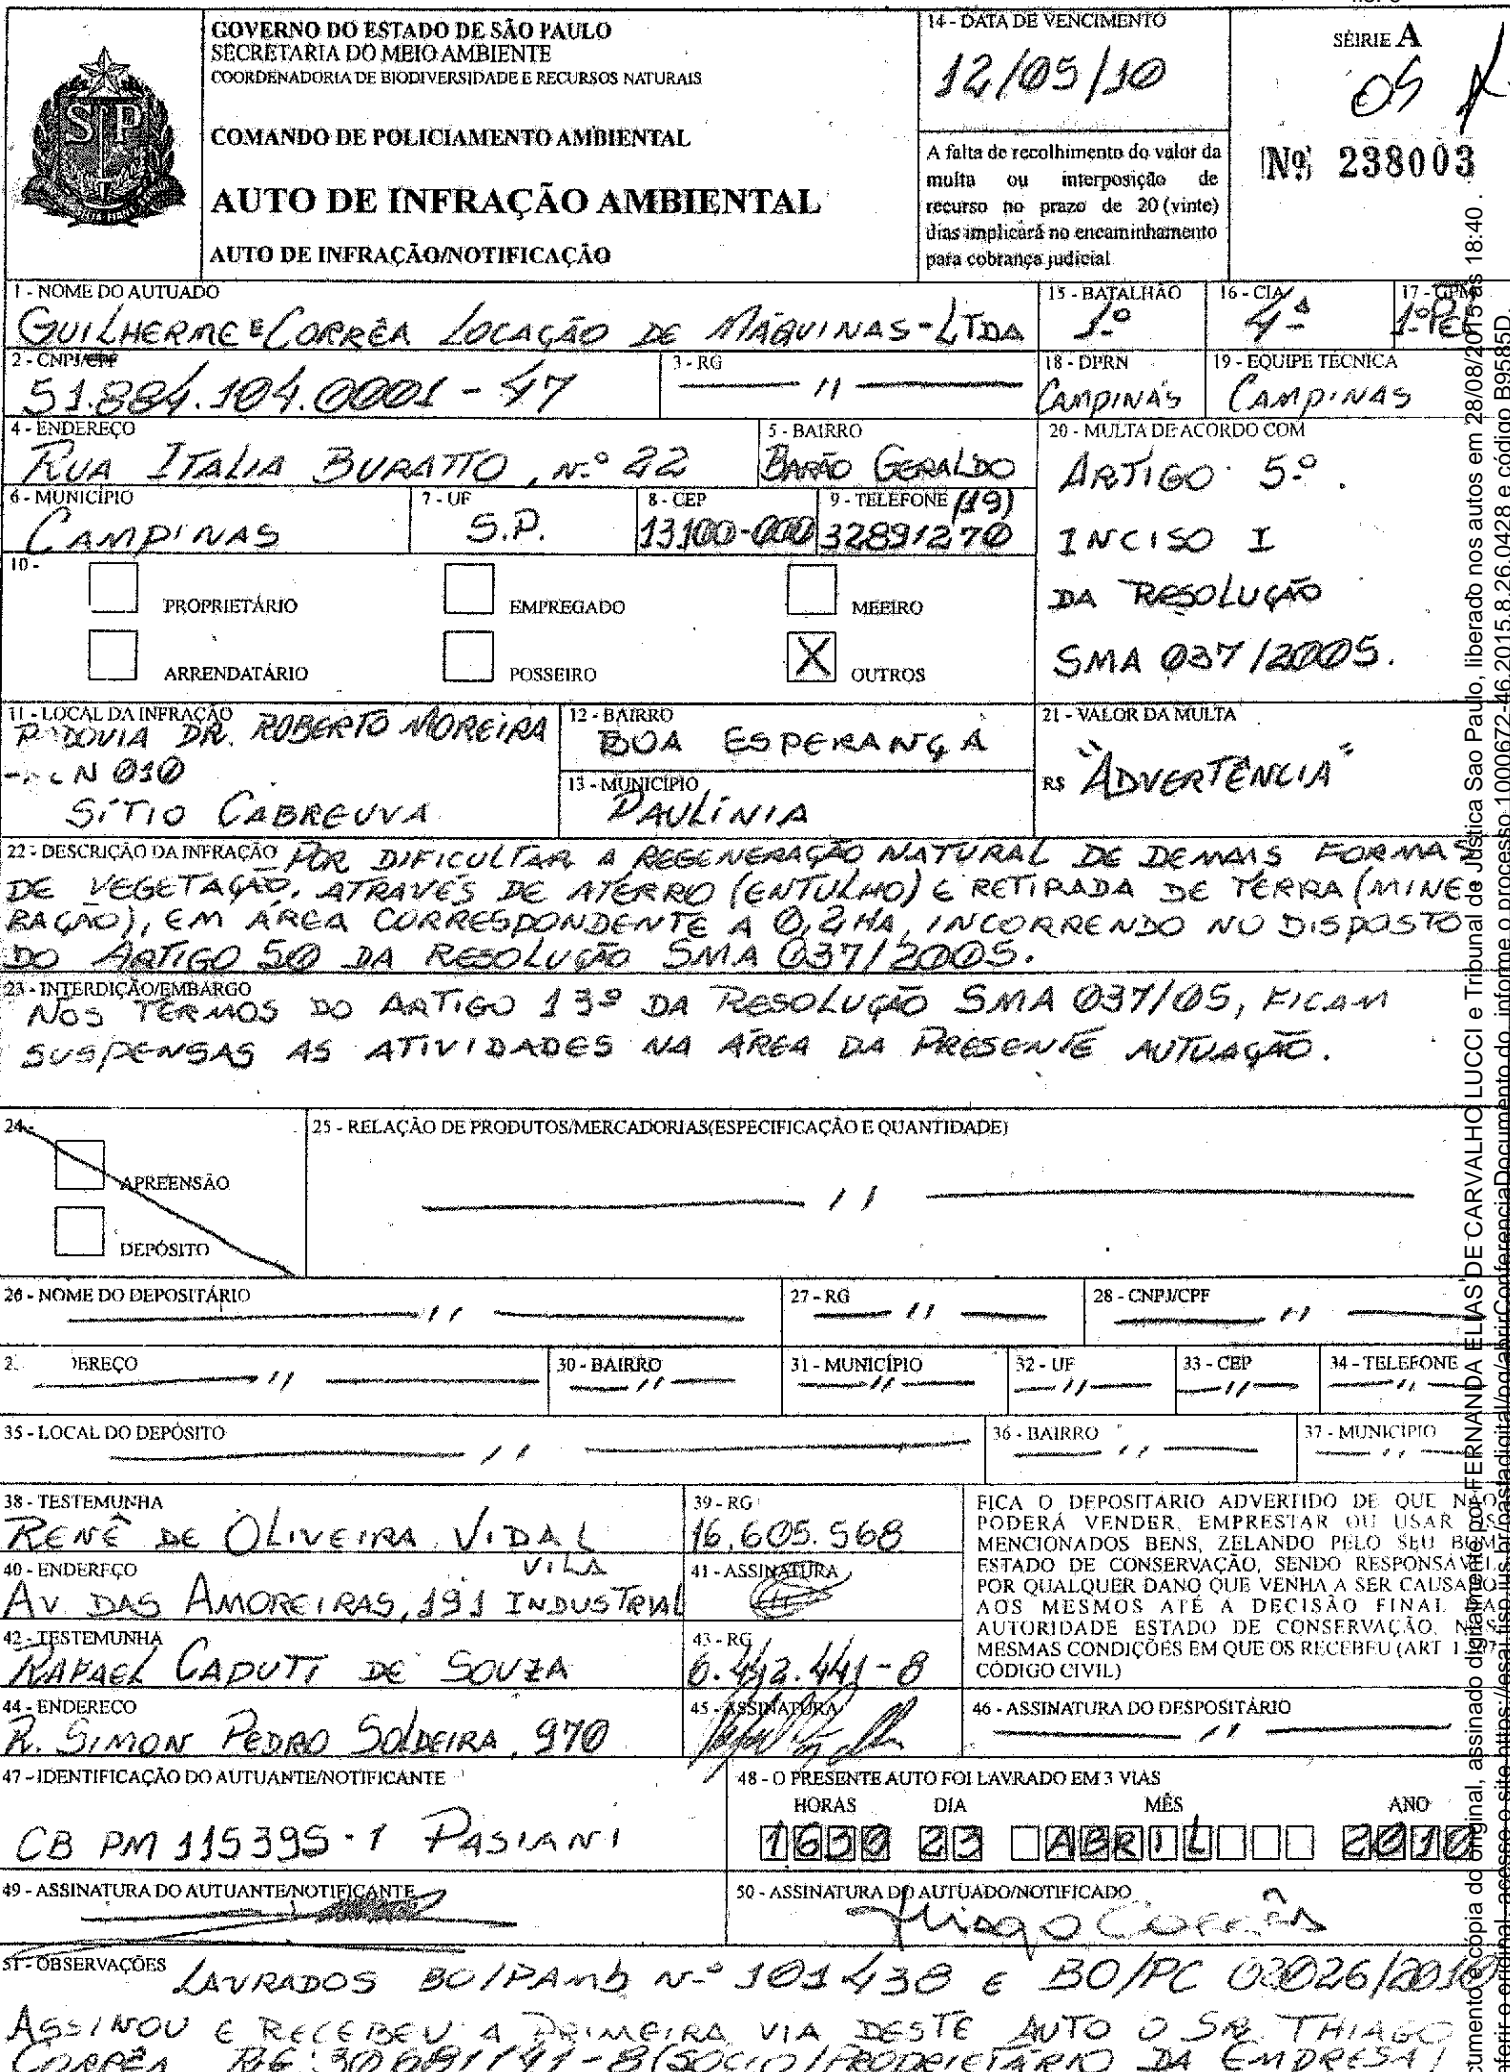 GOVERNO DO ESTADO DE SÃO PAULO
SECRETARIA DO MEIO AMBIENTE
COORDENADORIA DE BIODIVERSIDADE E RECURSOS NATURAIS
COMANDO DE POLICIAMENTO AMBIENTAL
AUTO DE INFRAÇÃO AMBIENTAL
AUTO DE INFRAÇÃO/NOTIFICAÇÃO
14 - DATA DE VENCIMENTO
12/05/10
A falta de recolhimento do valor da
multa ou interposição de
recurso no prazo de 20 (vinte)
dias implicará no encaminhamento
para cobrança judicial
SÉRIE A
05
Nº 238003
1 - NOME DO AUTUADO
GUILHERME E CORRÊA LOCAÇÃO DE MÁQUINAS-LTDA
15 - BATALHÃO
1º
16 - CIA
4ª
17 - GPM
1º PEL
2 - CNPJ/CPF
51.884.104.0001-47
3 - RG
—— // ——
18 - DPRN
CAMPINAS
19 - EQUIPE TÉCNICA
CAMPINAS
4 - ENDEREÇO
RUA ITALIA BURATTO, Nº 22
5 - BAIRRO
BARÃO GERALDO
20 - MULTA DE ACORDO COM
ARTIGO 5º.
INCISO I
DA RESOLUÇÃO
SMA 037/2005.
6 - MUNICÍPIO
CAMPINAS
7 - UF
S.P.
8 - CEP
13100-000
9 - TELEFONE (19)
32891270
10 -
PROPRIETÁRIO
EMPREGADO
MEEIRO
ARRENDATÁRIO
POSSEIRO
X OUTROS
11 - LOCAL DA INFRAÇÃO
RODOVIA DR. ROBERTO MOREIRA
N 010
SÍTIO CABREUVA
12 - BAIRRO
BOA ESPERANÇA
13 - MUNICÍPIO
PAULÍNIA
21 - VALOR DA MULTA
R$ "ADVERTÊNCIA"
22 - DESCRIÇÃO DA INFRAÇÃO POR DIFICULTAR A REGENERAÇÃO NATURAL DE DEMAIS FORMAS
DE VEGETAÇÃO, ATRAVÉS DE ATERRO (ENTULHO) E RETIRADA DE TERRA (MINE-
RAÇÃO), EM ÁREA CORRESPONDENTE A 0,2 HA, INCORRENDO NO DISPOSTO
DO ARTIGO 50 DA RESOLUÇÃO SMA 037/2005.
23 - INTERDIÇÃO/EMBARGO
NOS TERMOS DO ARTIGO 13º DA RESOLUÇÃO SMA 037/05, FICAM
SUSPENSAS AS ATIVIDADES NA ÁREA DA PRESENTE AUTUAÇÃO.
24 -
APREENSÃO
DEPÓSITO
25 - RELAÇÃO DE PRODUTOS/MERCADORIAS(ESPECIFICAÇÃO E QUANTIDADE)
—— // ——
26 - NOME DO DEPOSITÁRIO
—— // ——
27 - RG
—— // ——
28 - CNPJ/CPF
—— // ——
2. DEREÇO
—— // ——
30 - BAIRRO
—— // ——
31 - MUNICÍPIO
—— // ——
32 - UF
—— // ——
33 - CEP
—— // ——
34 - TELEFONE
—— // ——
35 - LOCAL DO DEPÓSITO
—— // ——
36 - BAIRRO
—— // ——
37 - MUNICÍPIO
—— // ——
38 - TESTEMUNHA
RENÊ DE OLIVEIRA VIDAL
39 - RG
16.605.568
40 - ENDEREÇO
AV. DAS AMOREIRAS, 191 VILA INDUSTRIAL
41 - ASSINATURA
42 - TESTEMUNHA
RAFAEL CAPUTTI DE SOUZA
43 - RG
6.442.441-8
44 - ENDEREÇO
R. SIMON PEDRO SOLDEIRA, 970
45 - ASSINATURA
FICA O DEPOSITÁRIO ADVERTIDO DE QUE NÃO
PODERÁ VENDER, EMPRESTAR OU USAR OS
MENCIONADOS BENS, ZELANDO PELO SEU BOM
ESTADO DE CONSERVAÇÃO, SENDO RESPONSÁVEL
POR QUALQUER DANO QUE VENHA A SER CAUSADO
AOS MESMOS ATÉ A DECISÃO FINAL DA
AUTORIDADE ESTADO DE CONSERVAÇÃO, NAS
MESMAS CONDIÇÕES EM QUE OS RECEBEU (ART
CÓDIGO CIVIL)
46 - ASSINATURA DO DESPOSITÁRIO
—— // ——
47 - IDENTIFICAÇÃO DO AUTUANTE/NOTIFICANTE
CB PM 115395-1 PASIANI
48 - O PRESENTE AUTO FOI LAVRADO EM 3 VIAS
HORAS DIA MÊS ANO
1630 23 ABRIL 2010
49 - ASSINATURA DO AUTUANTE/NOTIFICANTE
50 - ASSINATURA DO AUTUADO/NOTIFICADO
Thiago Corrêa
51 - OBSERVAÇÕES LAVRADOS BO/PAmb Nº 101438 E BO/PC 03026/2010
ASSINOU E RECEBEU A PRIMEIRA VIA DESTE AUTO O SR. THIAGO
CORRÊA (SÓCIO/PROPRIETÁRIO DA EMPRESA)
FERNANDA ELIAS DE CARVALHO LUCCI e Tribunal de Justica Sao Paulo, liberado nos autos em 28/08/2015 às 18:40 .
informe o processo 1000672-46.2015.8.26.0428 e código B9585D.